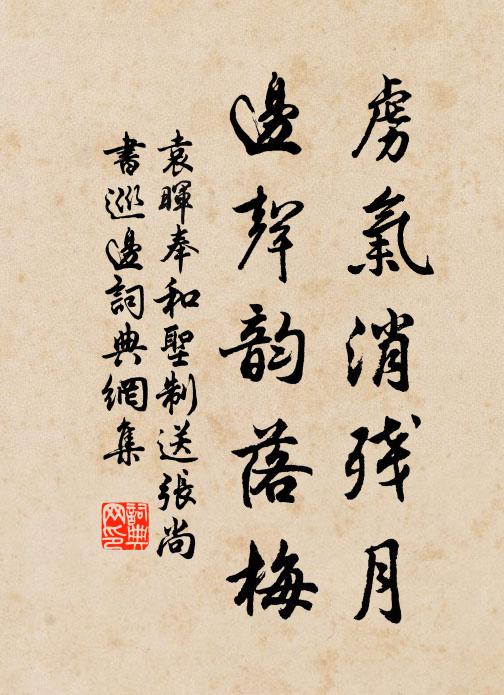 虜氣消残月
邊聲韵落梅
袁暉奉和聖制送張尚
書巡邊詞典網集
詞典网印